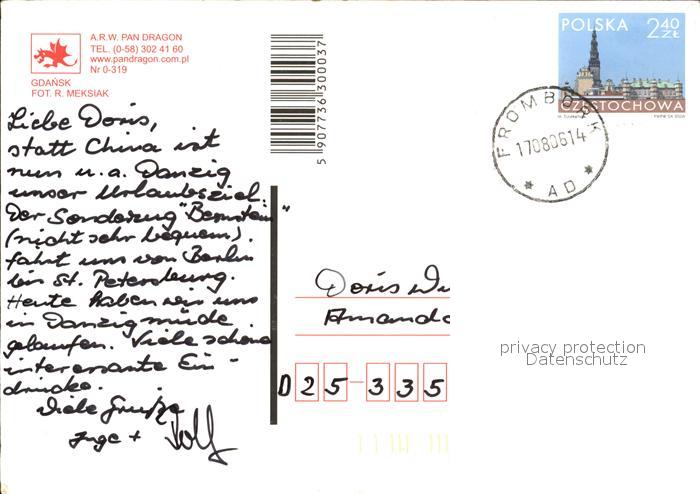 A.R.W. PAN DRAGON
TEL. (0-58) 302 41 60
www.pandragon.com.pl
Nr 0-319
GDAŃSK
FOT. R. MEKSIAK
5 907736 300037
POLSKA 2 40 ZŁ
CZĘSTOCHOWA
FROMBORK
17080614
* AD *
Liebe Doris,
statt China ist
nun u. a. Danzig
unser Urlaubsziel.
Der Sonderzug "Bernstein"
(nicht sehr bequem).
fährt uns von Berlin
bis St. Petersburg.
Heute haben wir uns
in Danzig müde
gelaufen. Viele schöne
interessante Ein-
drücke.
Viele Grüße
Inge + Rolf
Doris
D 25-335
privacy protection
Datenschutz